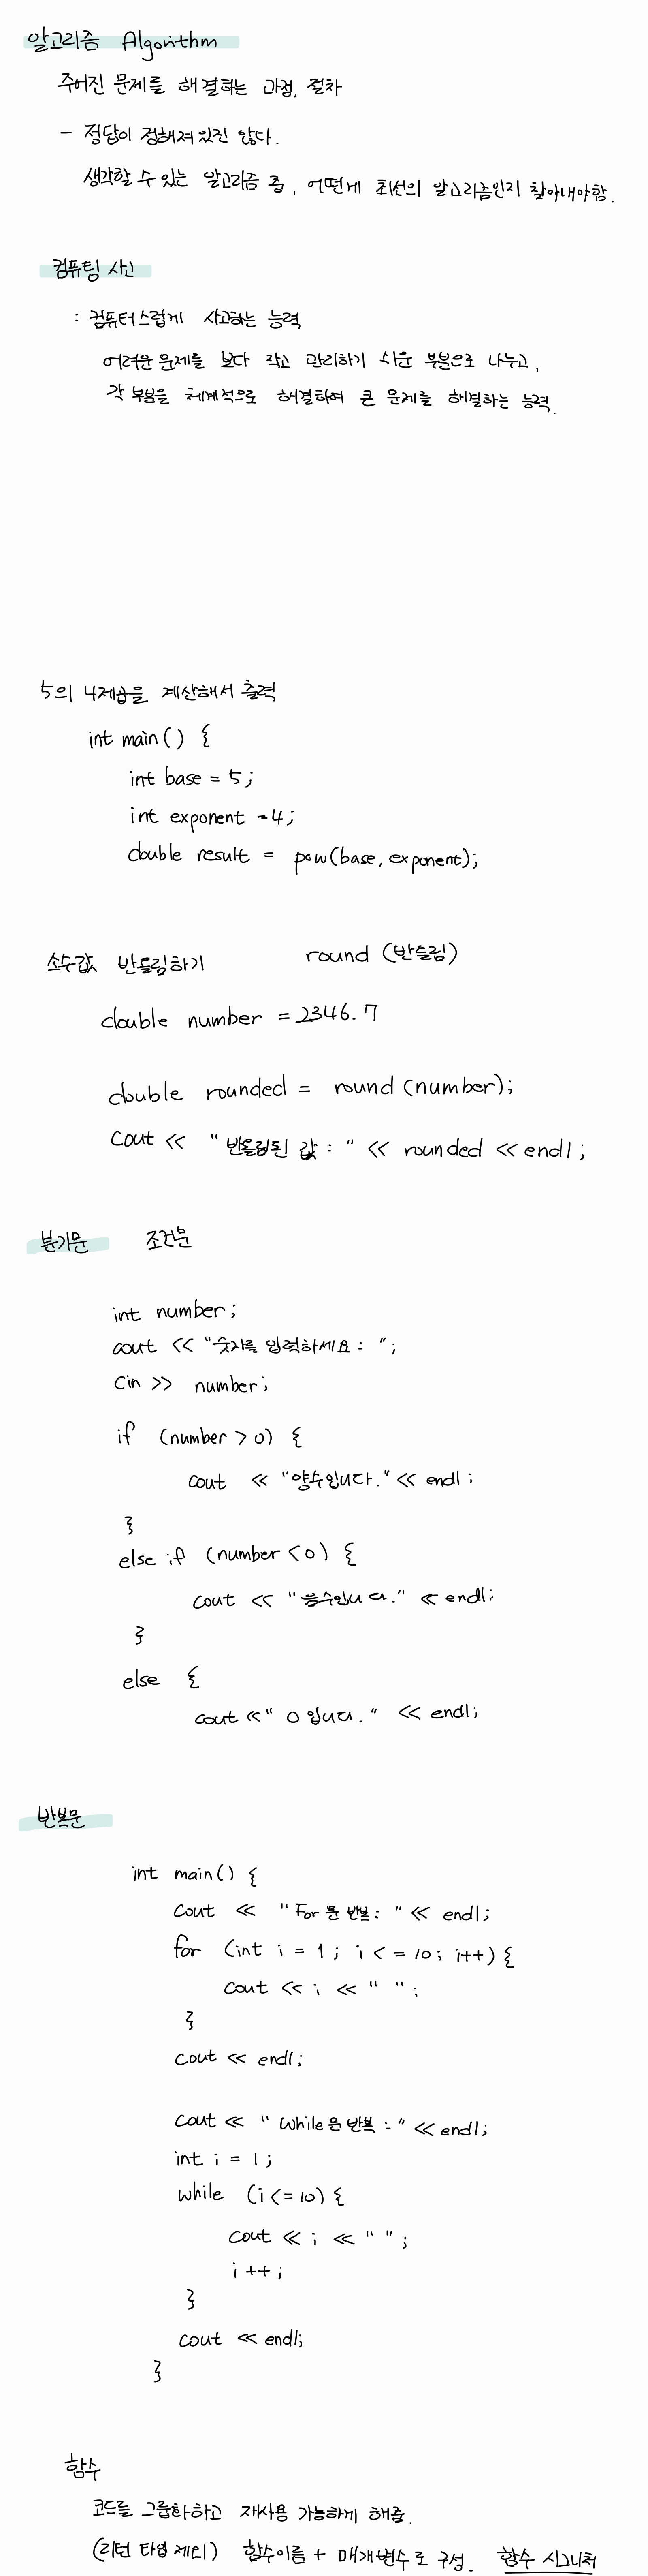 알고리즘 Algorithm
주어진 문제를 해결하는 과정, 절차
- 정답이 정해져있진 않다.
생각할 수 있는 알고리즘 중, 어떤게 최선의 알고리즘인지 찾아내야함.
컴퓨팅 사고
: 컴퓨터스럽게 사고하는 능력
어려운 문제를 보다 작고 관리하기 쉬운 부분으로 나누고,
각 부분을 체계적으로 해결하여 큰 문제를 해결하는 능력.
5의 4제곱을 계산해서 출력
int main() {
int base = 5;
int exponent = 4;
double result = pow(base, exponent);
소수값 반올림하기 round (반올림)
double number = 2346.7
double rounded = round (number);
cout << "반올림된 값 : " << rounded << endl;
분기문 조건문
int number;
cout << "숫자를 입력하세요 : ";
cin >> number;
if (number > 0) {
cout << "양수입니다." << endl;
}
else if (number < 0) {
cout << "음수입니다." << endl;
}
else {
cout << " 0 입니다. " << endl;
반복문
int main() {
cout << "For 문 반복 : " << endl;
for (int i = 1; i <= 10; i++) {
cout << i << " ";
}
cout << endl;
cout << " While문 반복 : " << endl;
int i = 1;
while (i <= 10) {
cout << i << " ";
i ++;
}
cout << endl;
}
함수
코드를 그룹화하고 재사용 가능하게 해줌.
(리턴 타입 제외) 함수이름 + 매개변수로 구성. 함수 시그니처